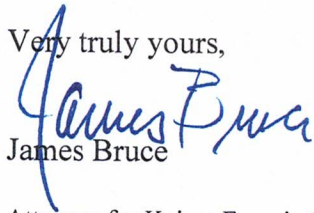 Very truly yours,
James Bruce
James Bruce